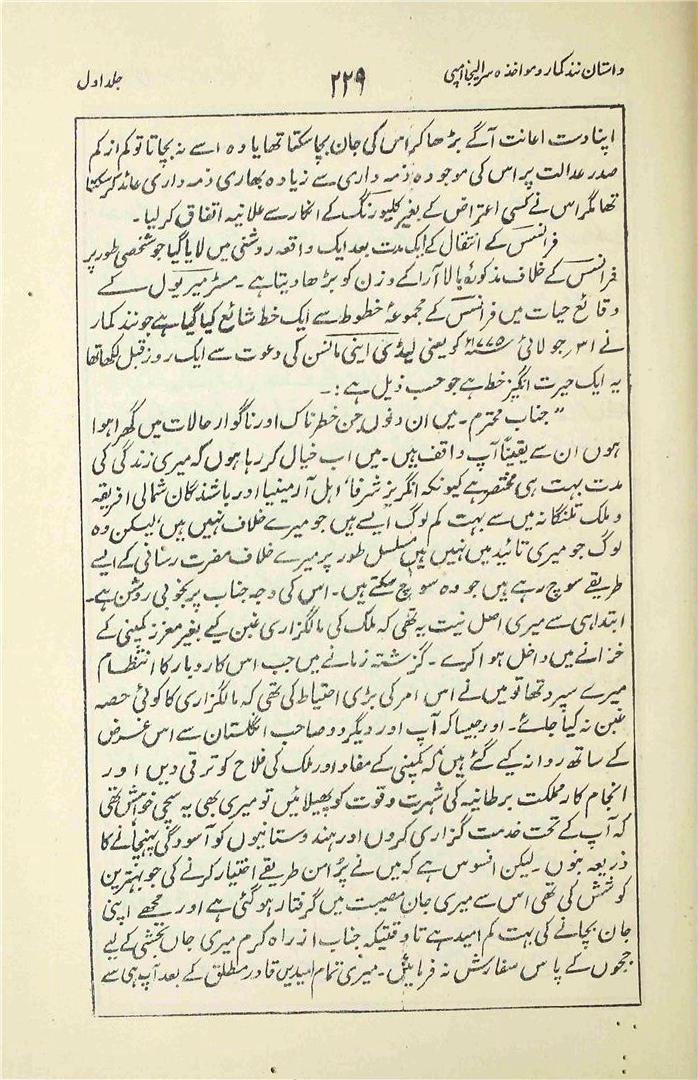 داستان نند کمار و مواخذہ سر الیجا امپی
۲۲۹
جلد اول
اپنا دست اعانت آگے بڑھا کر اس کی جان بچا سکتا تھا یا وہ اسے نہ بچاتا تو کم از کم
صدر عدالت پر اس کی موجودہ ذمہ داری سے زیادہ بھاری ذمہ داری عائد کر سکتا
تھا مگر اس نے کسی اعتراض کے بغیر کلیورنگ کے انکار سے علانیہ اتفاق کر لیا۔
فرانسس کے انتقال کے ایک مدت بعد ایک واقعہ روشنی میں لایا گیا جو شخصی طور پر
فرانسس کے خلاف مذکورۂ بالا آرا کے وزن کو بڑھا دیتا ہے۔ مسٹر میریول کے
وقائع حیات میں فرانسس کے مجموعۂ خطوط سے ایک خط شائع کیا گیا ہے جو نند کمار
نے ۳۱؍ جولائی ۱۷۷۵ء کو یعنی لیڈی اینی مانسن کی دعوت سے ایک روز قبل لکھا تھا
یہ ایک حیرت انگیز خط ہے جو حسب ذیل ہے:۔
”جناب محترم۔ میں ان دنوں جن خطرناک اور ناگوار حالات میں گھرا ہوا
ہوں ان سے یقیناً آپ واقف ہیں۔ میں اب خیال کر رہا ہوں کہ میری زندگی کی
مدت بہت ہی مختصر ہے کیونکہ انگریز شرفا، اہل آرمینیا اور باشندگان شمالی افریقہ
و ملک تلنگانہ میں سے بہت کم لوگ ایسے ہیں جو میرے خلاف نہیں ہیں، لیکن وہ
لوگ جو میری تائید میں نہیں ہیں مسلسل طور پر میرے خلاف مضرت رسانی کے ایسے
طریقے سوچ رہے ہیں جو وہ سوچ سکتے ہیں۔ اس کی وجہ جناب پر بخوبی روشن ہے۔
ابتدا ہی سے میری اصل نیت یہ تھی کہ ملک کی مالگزاری غبن کیے بغیر معزز کمپنی کے
خزانے میں داخل ہوا کرے۔ گزشتہ زمانے میں جب اس کاروبار کا انتظام
میرے سپرد تھا تو میں نے اس امر کی بڑی احتیاط کی تھی کہ مالگزاری کا کوئی حصہ
غبن نہ کیا جائے۔ اور جیسا کہ آپ اور دیگر دو صاحب انگلستان سے اس غرض
کے ساتھ روانہ کیے گئے ہیں کہ کمپنی کے مفاد اور ملک کی فلاح کو ترقی دیں اور
انجام کار مملکت برطانیہ کی شہرت و قوت کو پھیلائیں تو میری بھی یہ سچی خواہش تھی
کہ آپ کے تحت خدمت گزاری کروں اور ہندوستانیوں کو آسودگی پہنچانے کا
ذریعہ بنوں۔ لیکن افسوس ہے کہ میں نے پر امن طریقے اختیار کرنے کی جو بہترین
کوشش کی تھی اس سے میری جان مصیبت میں گرفتار ہو گئی ہے اور مجھے اپنی
جان بچانے کی بہت کم امید ہے تا وقتیکہ جناب از راہ کرم میری جاں بخشی کے لیے
ججوں کے پاس سفارش نہ فرمائیں۔ میری تمام امیدیں قادر مطلق کے بعد آپ ہی سے